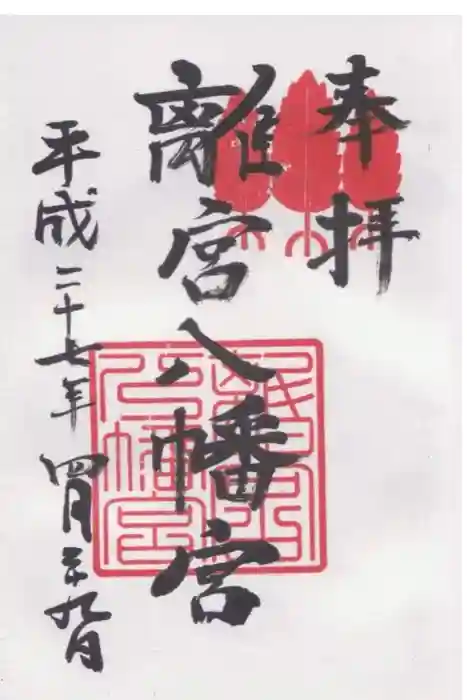 奉拝
離宮八幡宮
平成二十七年四月二十九日